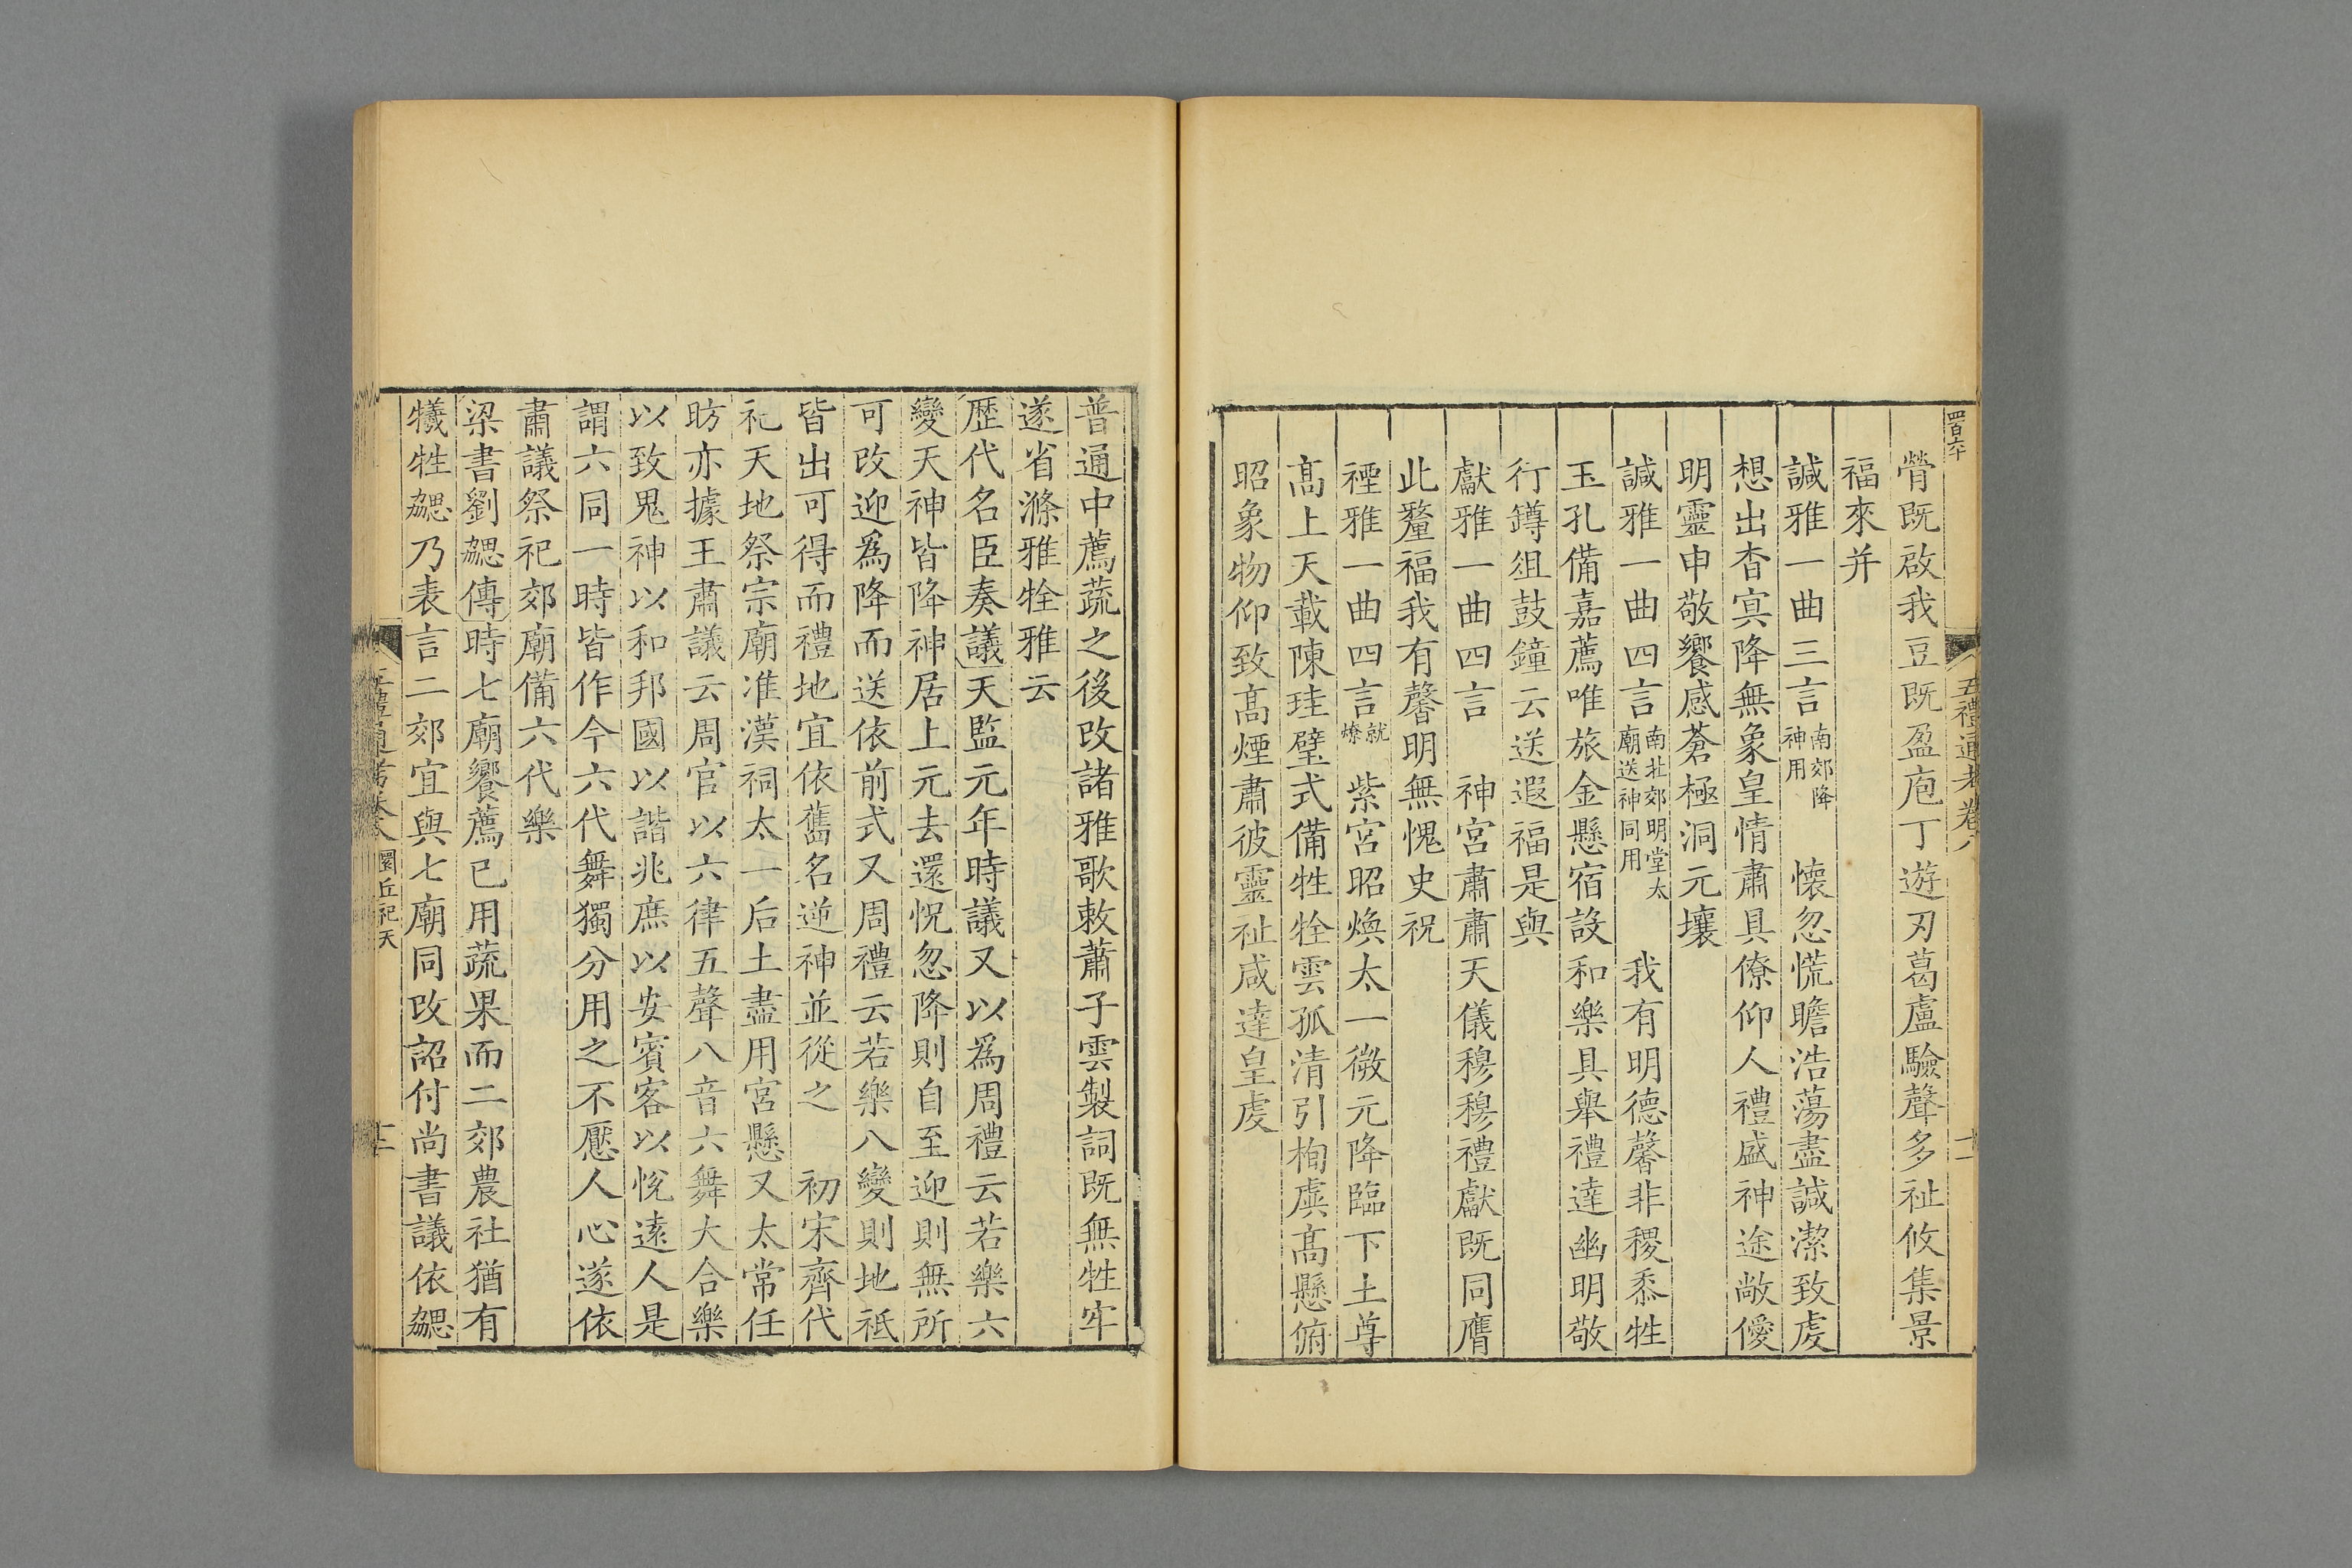 四百六十
五禮通考卷八
十一
膋既啟我豆既盈庖丁遊刃葛盧驗聲多祉攸集景
福來并
誠雅一曲三言南郊降神用 懷忽慌瞻浩蕩盡誠潔致虔
想出杳冥降無象皇情肅具僚仰人禮盛神途敞僾
明靈申敬饗感蒼極洞元壤
誠雅一曲四言南北郊明堂太廟送神同用 我有明德馨非稷黍牲
玉孔備嘉薦唯旅金懸宿設和樂具舉禮達幽明敬
行罇俎鼓鐘云送遐福是與
獻雅一曲四言 神宮肅肅天儀穆穆禮獻既同膺
此釐福我有馨明無愧史祝
禋雅一曲四言就燎 紫宮昭煥太一微元降臨下土尊
高上天載陳珪璧式備牲牷雲孤清引栒虡高懸俯
昭象物仰致高煙肅彼靈祉咸達皇虔
普通中薦蔬之後改諸雅歌敕蕭子雲製詞既無牲牢
遂省滌雅牷雅云
歷代名臣奏議天監元年時議又以爲周禮云若樂六
變天神皆降神居上元去還怳忽降則自至迎則無所
可改迎爲降而送依前式又周禮云若樂八變則地祇
皆出可得而禮地宜依舊名逆神並從之 初宋齊代
祀天地祭宗廟准漢祠太一后土盡用宮懸又太常任
昉亦據王肅議云周官以六律五聲八音六舞大合樂
以致鬼神以和邦國以諧兆庶以安賓客以悅遠人是
謂六同一時皆作今六代舞獨分用之不壓人心遂依
肅議祭祀郊廟備六代樂
梁書劉勰傳時七廟饗薦已用蔬果而二郊農社猶有
犧牲勰乃表言二郊宜與七廟同改詔付尚書議依勰
五禮通考卷八 圜丘祀天
十二